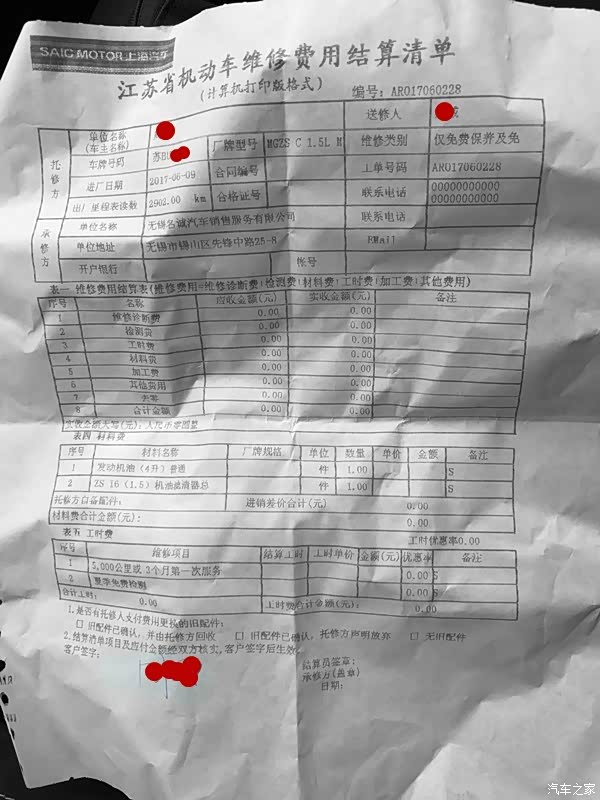 SAIC MOTOR 上海汽车
江苏省机动车维修费用结算清单
(计算机打印版格式) 编号: ARO17060228
托修方 单位名称(车主名称) 送修人
车牌号码 苏B 厂牌型号 MGZS C 1.5L M 维修类别 仅免费保养及免
进厂日期 2017-06-09 合同编号 工单号码 ARO17060228
出厂里程表读数 2902.00 km 合格证号 联系电话 00000000000 00000000000
承修方 单位名称 无锡名诚汽车销售服务有限公司 联系电话
单位地址 无锡市锡山区先锋中路25-8 EMail
开户银行 帐号
表一 维修费用结算表(维修费用=维修诊断费+检测费+材料费+工时费+加工费+其他费用)
序号 名称 应收金额(元) 实收金额(元) 备注
1 维修诊断费 0.00 0.00
2 检测费 0.00 0.00
3 工时费 0.00 0.00
4 材料费 0.00 0.00
5 加工费 0.00 0.00
6 其他费用 0.00 0.00
7 去零 0.00 0.00
8 合计金额 0.00 0.00
实收金额大写(元): 人民币零圆整
表四 材料费
序号 材料名称 厂牌规格 单位 数量 单价 金额 备注
1 发动机油(4升)普通 件 1.00 S
2 ZS 16(1.5)机油滤清器总 件 1.00 S
托修方自备配件: 进销差价合计(元) 0.00
材料费合计金额(元): 0.00
表五 工时费 工时优惠率0.00
序号 维修项目 结算工时 工时单价 金额(元) 优惠率 备注
1 5,000公里或3个月第一次服务 0.00 S
2 夏季免费检测 0.00 S
合计工时: 0.00 工时费合计金额(元): 0.00
1.是否有托修人支付费用更换的旧配件:
□ 旧配件已确认,并由托修方回收 □ 旧配件已确认,托修方声明放弃 □ 无旧配件
2.结算清单项目及应付金额经双方核实,客户签字后生效。
客户签字: 结算员签章:
承修方(盖章)
日期:
汽车之家